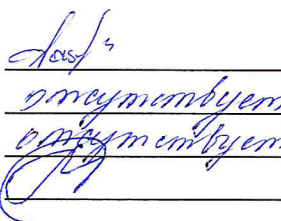 отсутствует
отсутствует